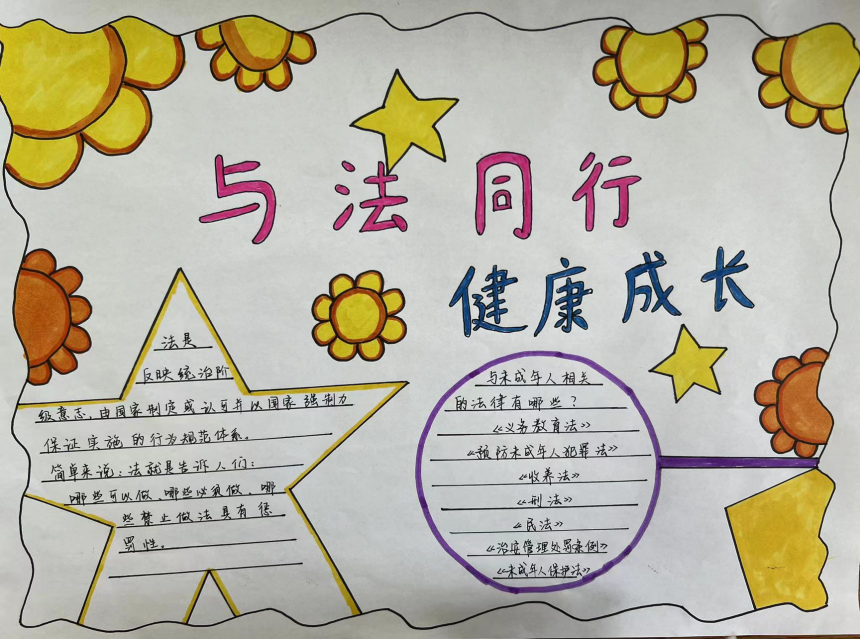 与法同行
健康成长
法是
反映统治阶
级意志,由国家制定或认可并以国家强制力
保证实施的行为规范体系。
简单来说:法就是告诉人们:
哪些可以做、哪些必须做、哪
些禁止做法具有惩
罚性。
与未成年人相关
的法律有哪些?
《义务教育法》
《预防未成年人犯罪法》
《收养法》
《刑法》
《民法》
《治安管理处罚条例》
《未成年人保护法》